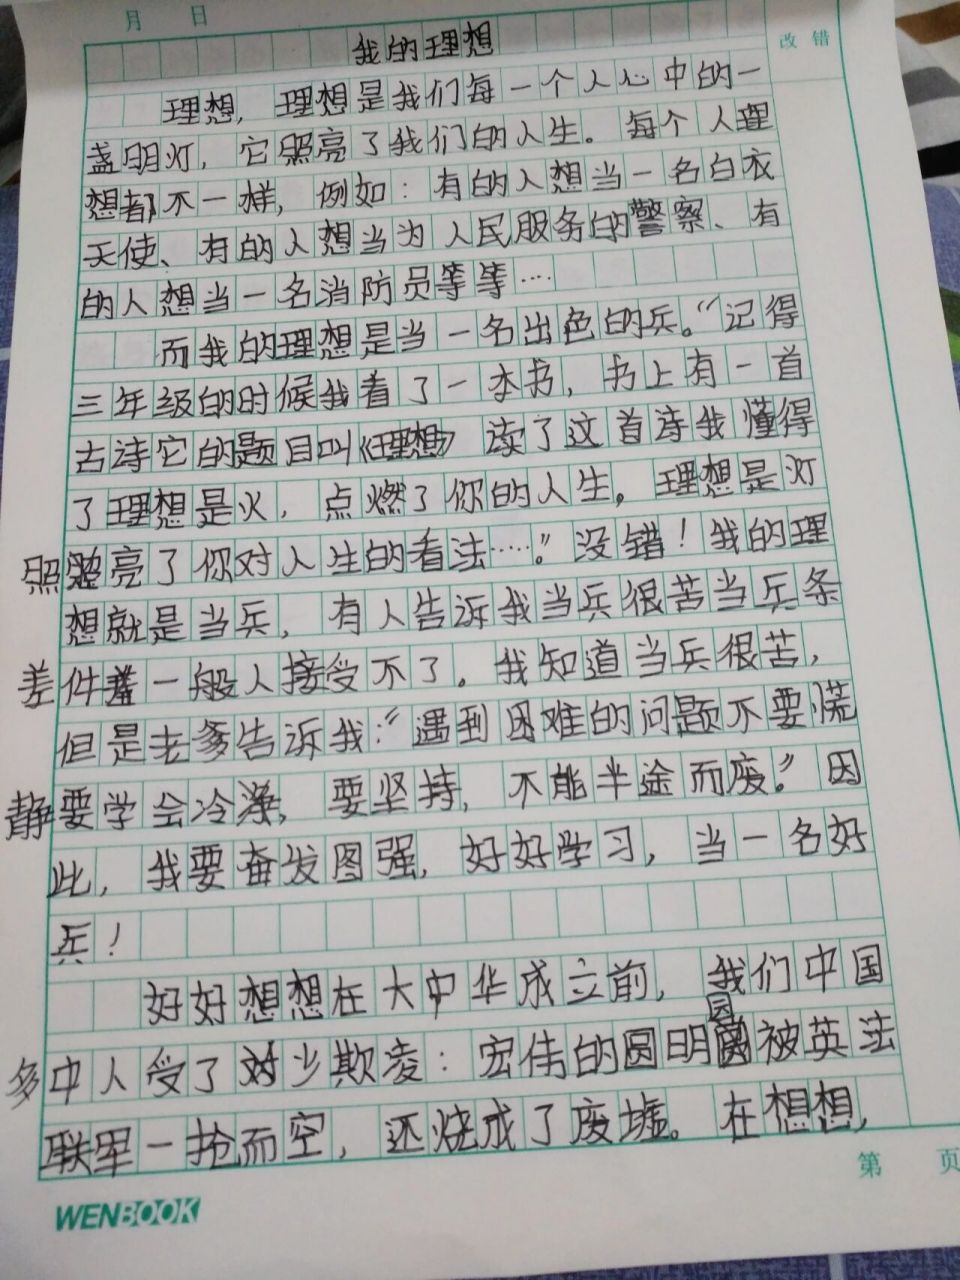 月 日
改 错
我的理想
理想，理想是我们每一个人心中的一
盏明灯，它照亮了我们的人生。每个人理
想都不一样，例如：有的人想当一名白衣
天使、有的人想当为人民服务的警察、有
的人想当一名消防员等等…
而我的理想是当一名出色的兵。“记得
三年级的时候我看了一本书，书上有一首
古诗它的题目叫《理想》读了这首诗我懂得
了理想是火，点燃了你的人生。理想是灯
照亮了你对人生的看法……”。没错！我的理
想就是当兵，有人告诉我当兵很苦当兵条
件差一般人接受不了。我知道当兵很苦，
但是老爹告诉我：“遇到困难的问题不要慌
要学会冷静，要坚持，不能半途而废。”因
此，我要奋发图强，好好学习，当一名好
兵！
好好想想在大中华成立前，我们中国
中人受了多少欺凌：宏伟的圆明园被英法
联军一抢而空，还烧成了废墟。在想想，
第 页
WENBOOK